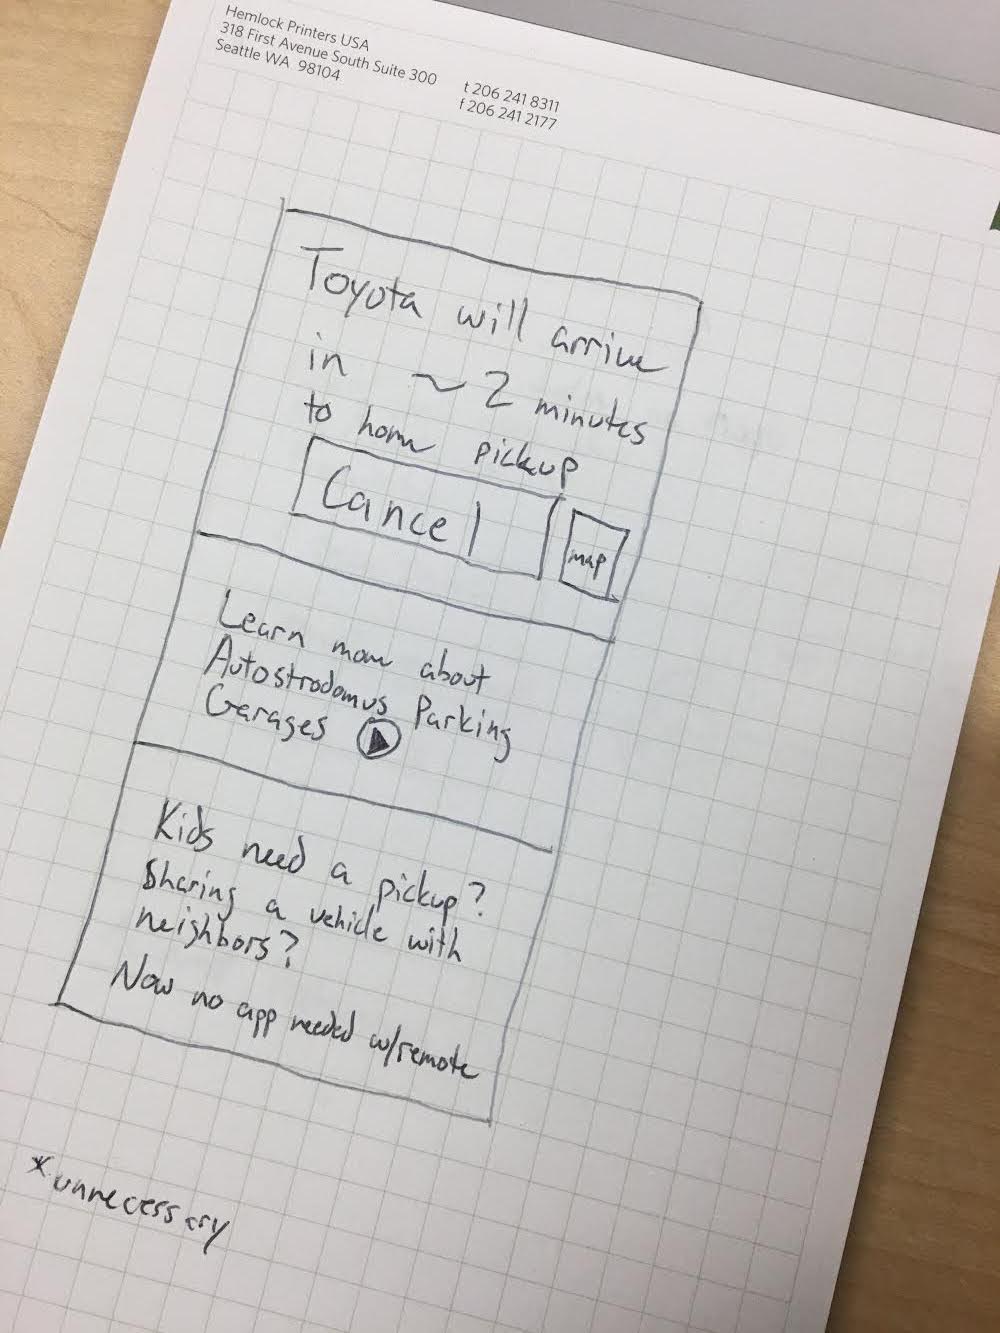 Hemlock Printers USA
318 First Avenue South Suite 300
Seattle WA 98104
t 206 241 8311
f 206 241 2177
Toyota will arrive
in ~ 2 minutes
to home pickup
Cancel
map
Learn more about
Autostrodomus Parking
Garages
Kids need a pickup?
Sharing a vehicle with
neighbors?
Now no app needed w/remote
*unnecessary